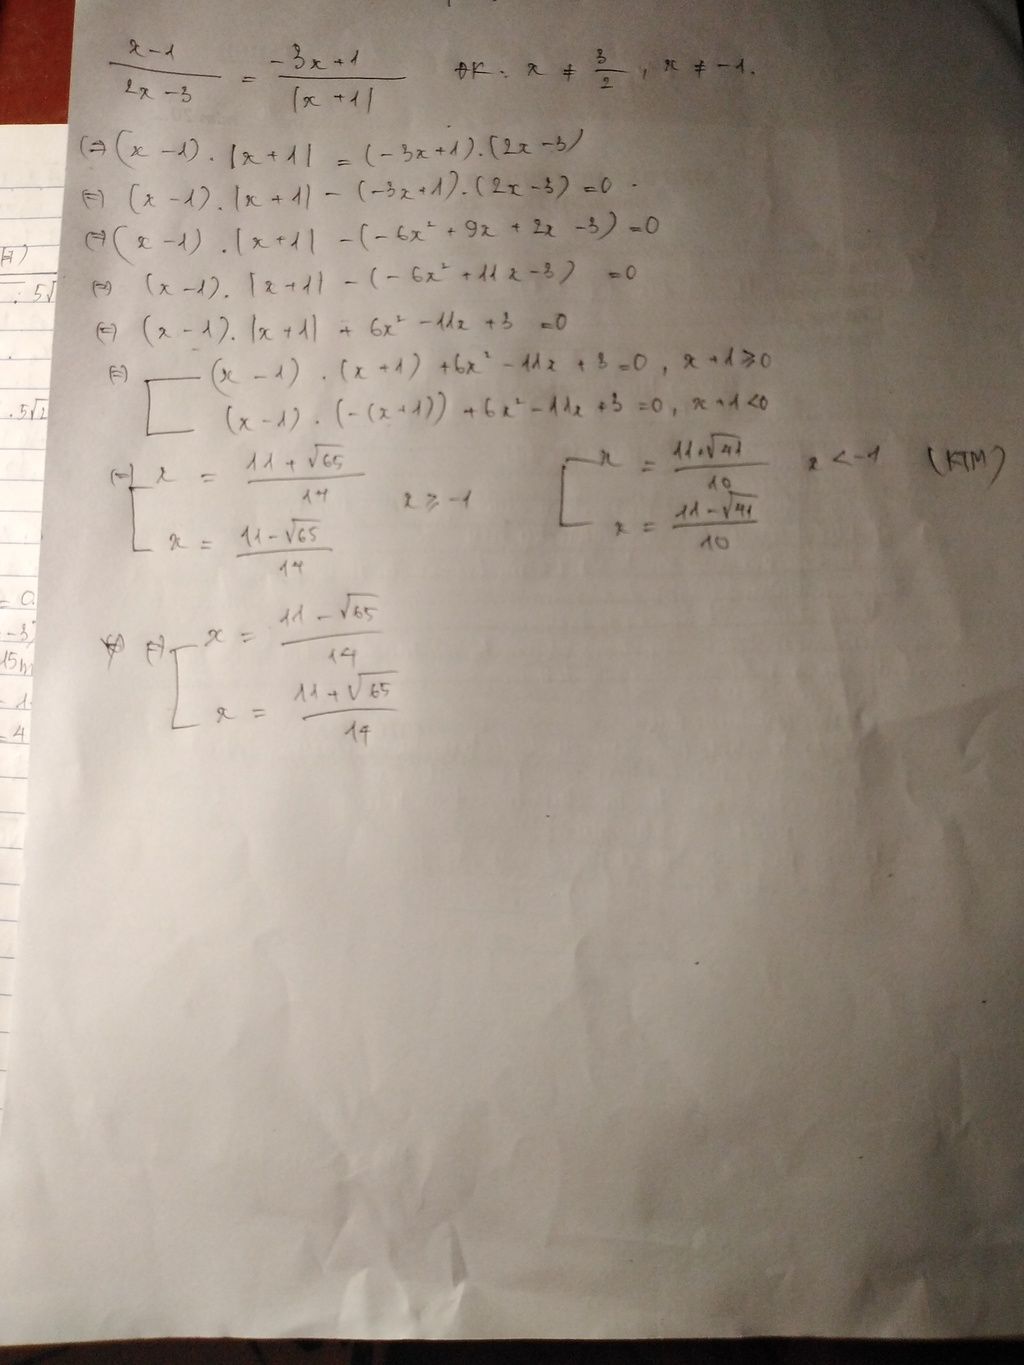 x-1 / 2x-3 = -3x+1 / |x+1| ĐK: x ≠ 3/2, x ≠ -1.
(=) (x-1).|x+1| = (-3x+1).(2x-3)
(=) (x-1).|x+1| - (-3x+1).(2x-3) = 0
(=) (x-1).|x+1| - (-6x² + 9x + 2x - 3) = 0
(=) (x-1).|x+1| - (-6x² + 11x - 3) = 0
(=) (x-1).|x+1| + 6x² - 11x + 3 = 0
(=) [ (x-1).(x+1) + 6x² - 11x + 3 = 0, x+1 ≥ 0
(x-1).(-(x+1)) + 6x² - 11x + 3 = 0, x+1 < 0
(=) [ x = 11+√65 / 14 x ≥ -1
x = 11-√65 / 14
[ x = 11+√41 / 10 x < -1 (KTM)
x = 11-√41 / 10
(=) [ x = 11-√65 / 14
x = 11+√65 / 14
. 5√
. 5√2
= 0.
-3
15h
- 1
- 4